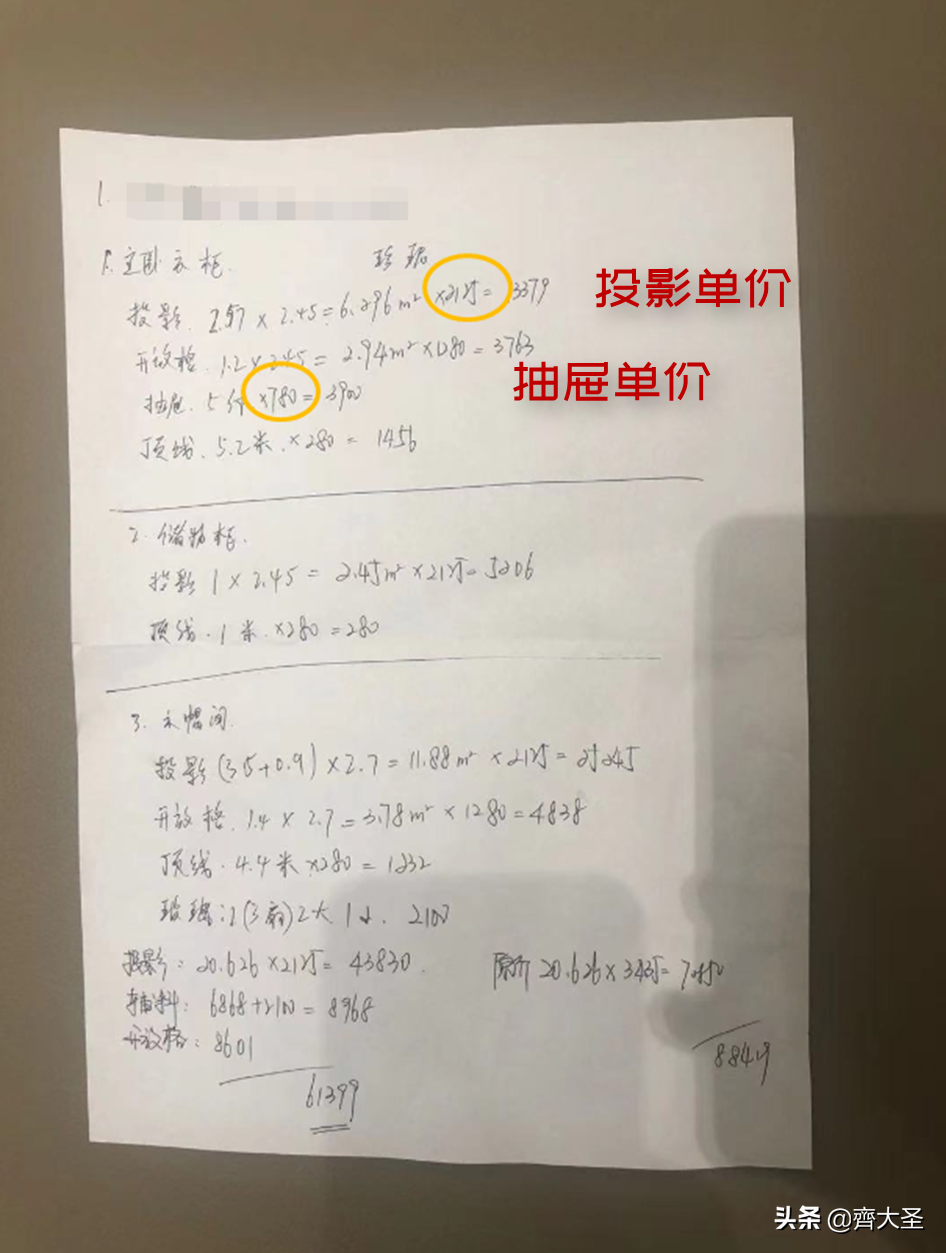 1.
1. 主卧衣柜.
投影. 2.57 × 2.45 = 6.296m² ×2125 = 13379
投影单价
开放格. 1.2 × 2.45 = 2.94m² ×1280 = 3763
抽屉. 5件 ×780 = 3900
抽屉单价
顶线. 5.2米. ×280 = 1456
2. 储物柜.
投影 1 × 2.45 = 2.45m² ×2125 = 5206
顶线. 1米. ×280 = 280
3. 衣帽间.
投影 (3.5+0.9) × 2.7 = 11.88m² ×2125 = 25245
开放格. 1.4 × 2.7 = 3.78m² × 1280 = 4838
顶线. 4.4米 ×280 = 1232
玻璃: (3扇) 2大 1小. 2100
投影: 20.626 ×2125 = 43830. 原价 20.626 × 3435 =
辅料: 6868+2100 = 8968
开放格: 8601
61399
头条 @齊大圣